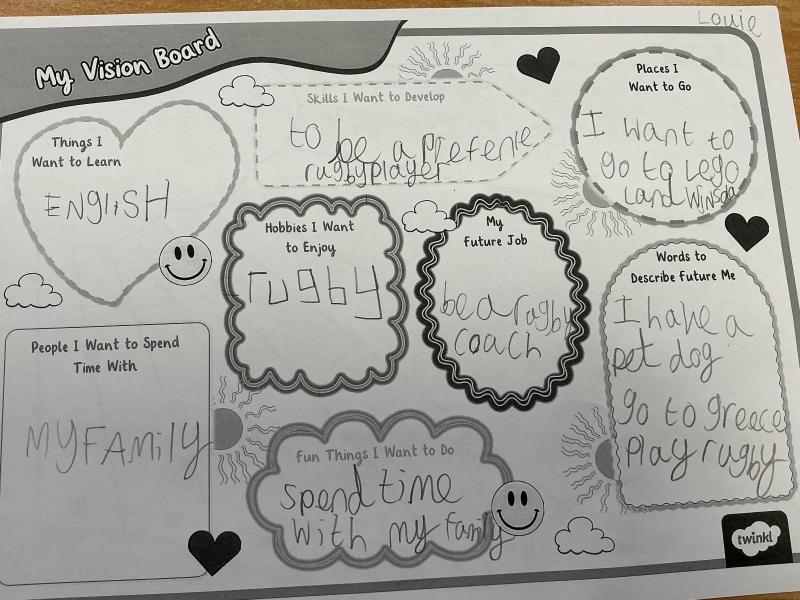 Louie
My Vision Board
Things I
Want to Learn
ENgliSH
Skills I Want to Develop
to be a prefenie
rugbyplayer
Places I
Want to Go
I want to
go to Lego
Land Winsda
Hobbies I Want
to Enjoy
rugby
My
Future Job
be a rugby
coach
Words to
Describe Future Me
I have a
pet dog
go to greece
Play rugby
People I Want to Spend
Time With
MY FAMilY
Fun Things I Want to Do
spend time
with my family
twinkl